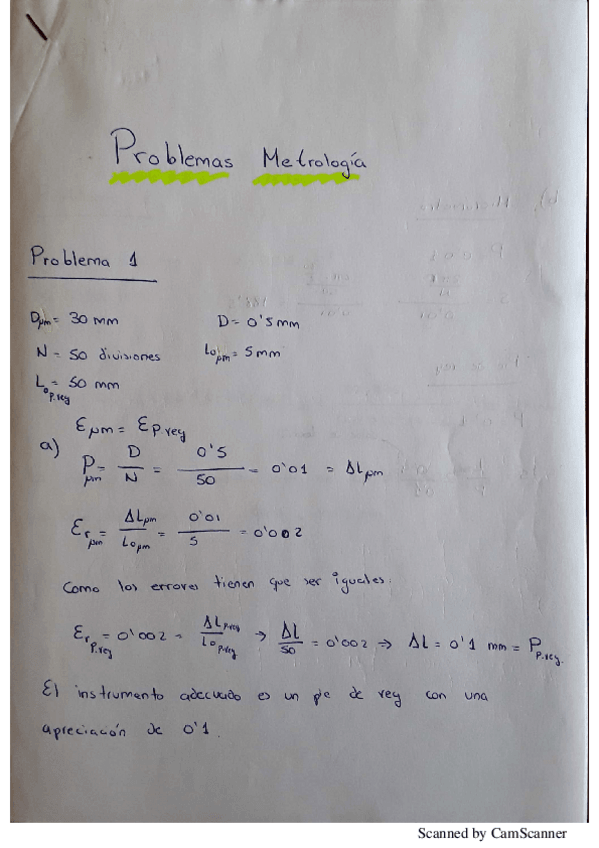 Problemas Metrología
Problema 1
Dμm = 30 mm D = 0'5 mm
N = 50 divisiones L₀μm = 5 mm
L₀P.rey = 50 mm
Eμm = EP.rey
a) Pμm = D/N = 0'5/50 = 0'01 = ΔLμm
Erμm = ΔLμm/L₀μm = 0'01/5 = 0'002
Como los errores tienen que ser iguales:
ErP.rey = 0'002 = ΔLP.rey/L₀P.rey → ΔL/50 = 0'002 → ΔL = 0'1 mm = PP.rey.
El instrumento adecuado es un pie de rey con una
apreciación de 0'1.
Scanned by CamScanner